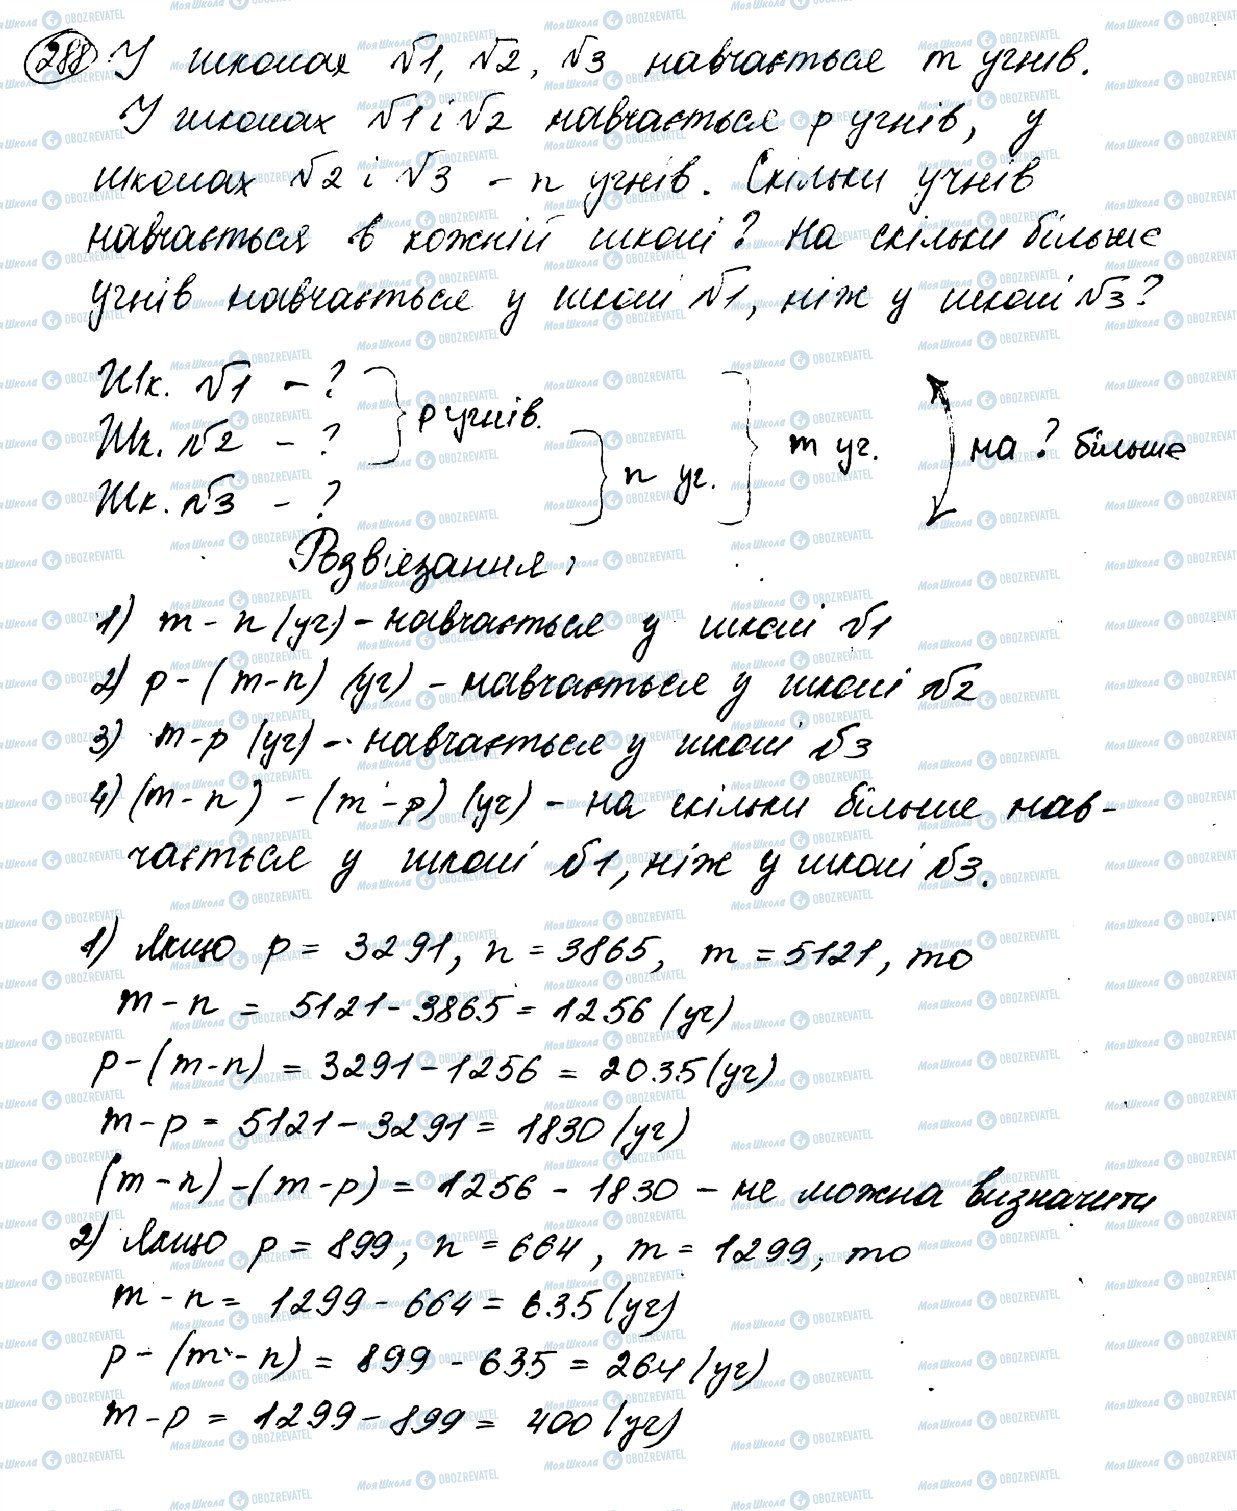 288 У школах №1, №2, №3 навчається m учнів.
У школах №1 і №2 навчається p учнів, у
школах №2 і №3 - n учнів. Скільки учнів
навчається в кожній школі? На скільки більше
учнів навчається у школі №1, ніж у школі №3?
Шк. №1 - ? } p учнів.
Шк. №2 - ? } n уч. } m уч. на ? більше
Шк. №3 - ?
Розв'язання:
1) m - n (уч) - навчається у школі №1
2) p - (m - n) (уч) - навчається у школі №2
3) m - p (уч) - навчається у школі №3
4) (m - n) - (m - p) (уч) - на скільки більше нав-
чається у школі №1, ніж у школі №3.
1) Якщо p = 3291, n = 3865, m = 5121, то
m - n = 5121 - 3865 = 1256 (уч)
p - (m - n) = 3291 - 1256 = 2035 (уч)
m - p = 5121 - 3291 = 1830 (уч)
(m - n) - (m - p) = 1256 - 1830 - не можна визначити
2) Якщо p = 899, n = 664, m = 1299, то
m - n = 1299 - 664 = 635 (уч)
p - (m - n) = 899 - 635 = 264 (уч)
m - p = 1299 - 899 = 400 (уч)
Моя Школа OBOZREVATEL